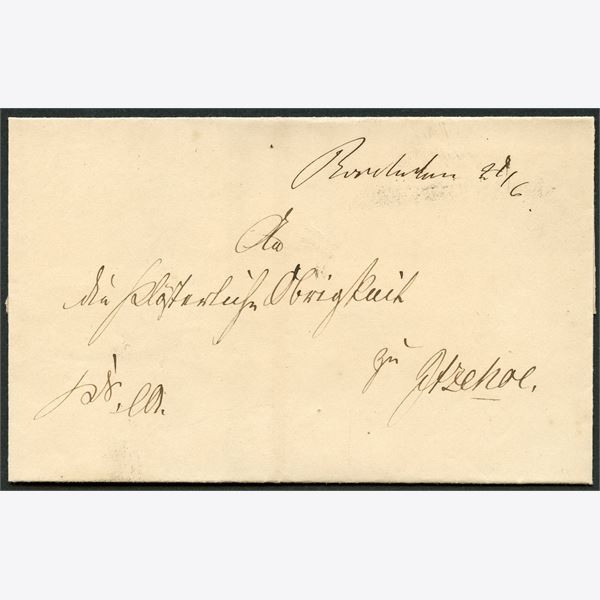 Bordesholm 21/6
An
die klösterliche Obrigkeit
zu Itzehoe.